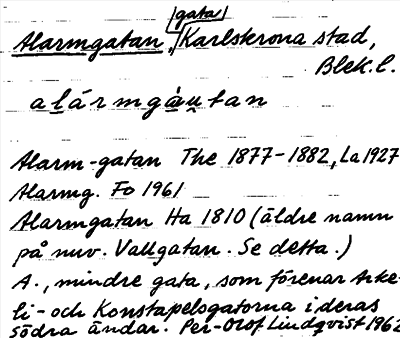 gata
Alarmgatan, Karlskrona stad,
Blek. l.
Alarm-gatan The 1877-1882, La 1927
Alarmg. Fo 1961
Alarmgatan Ha 1810 (äldre namn
på nuv. Vallgatan. Se detta.)
A., mindre gata, som förenar Arke-
li- och Konstapelsgatorna i deras
södra ändar. Per-Olof Lindqvist 1962